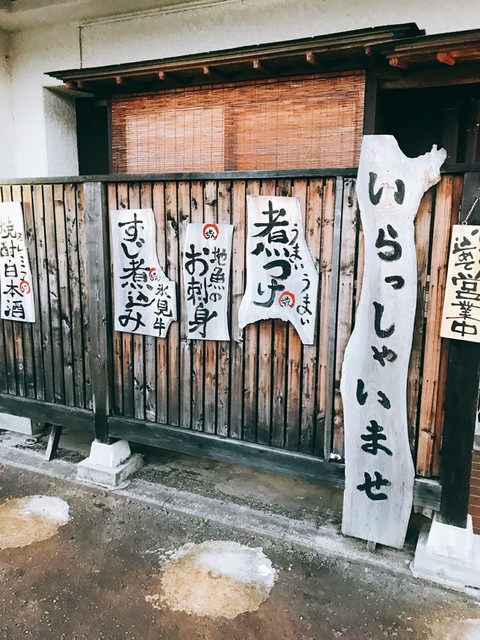 いらっしゃいませ
営業中
うまいうまい
煮つけ
地魚の
お刺身
すじ煮込み
氷見牛
焼酎日本酒